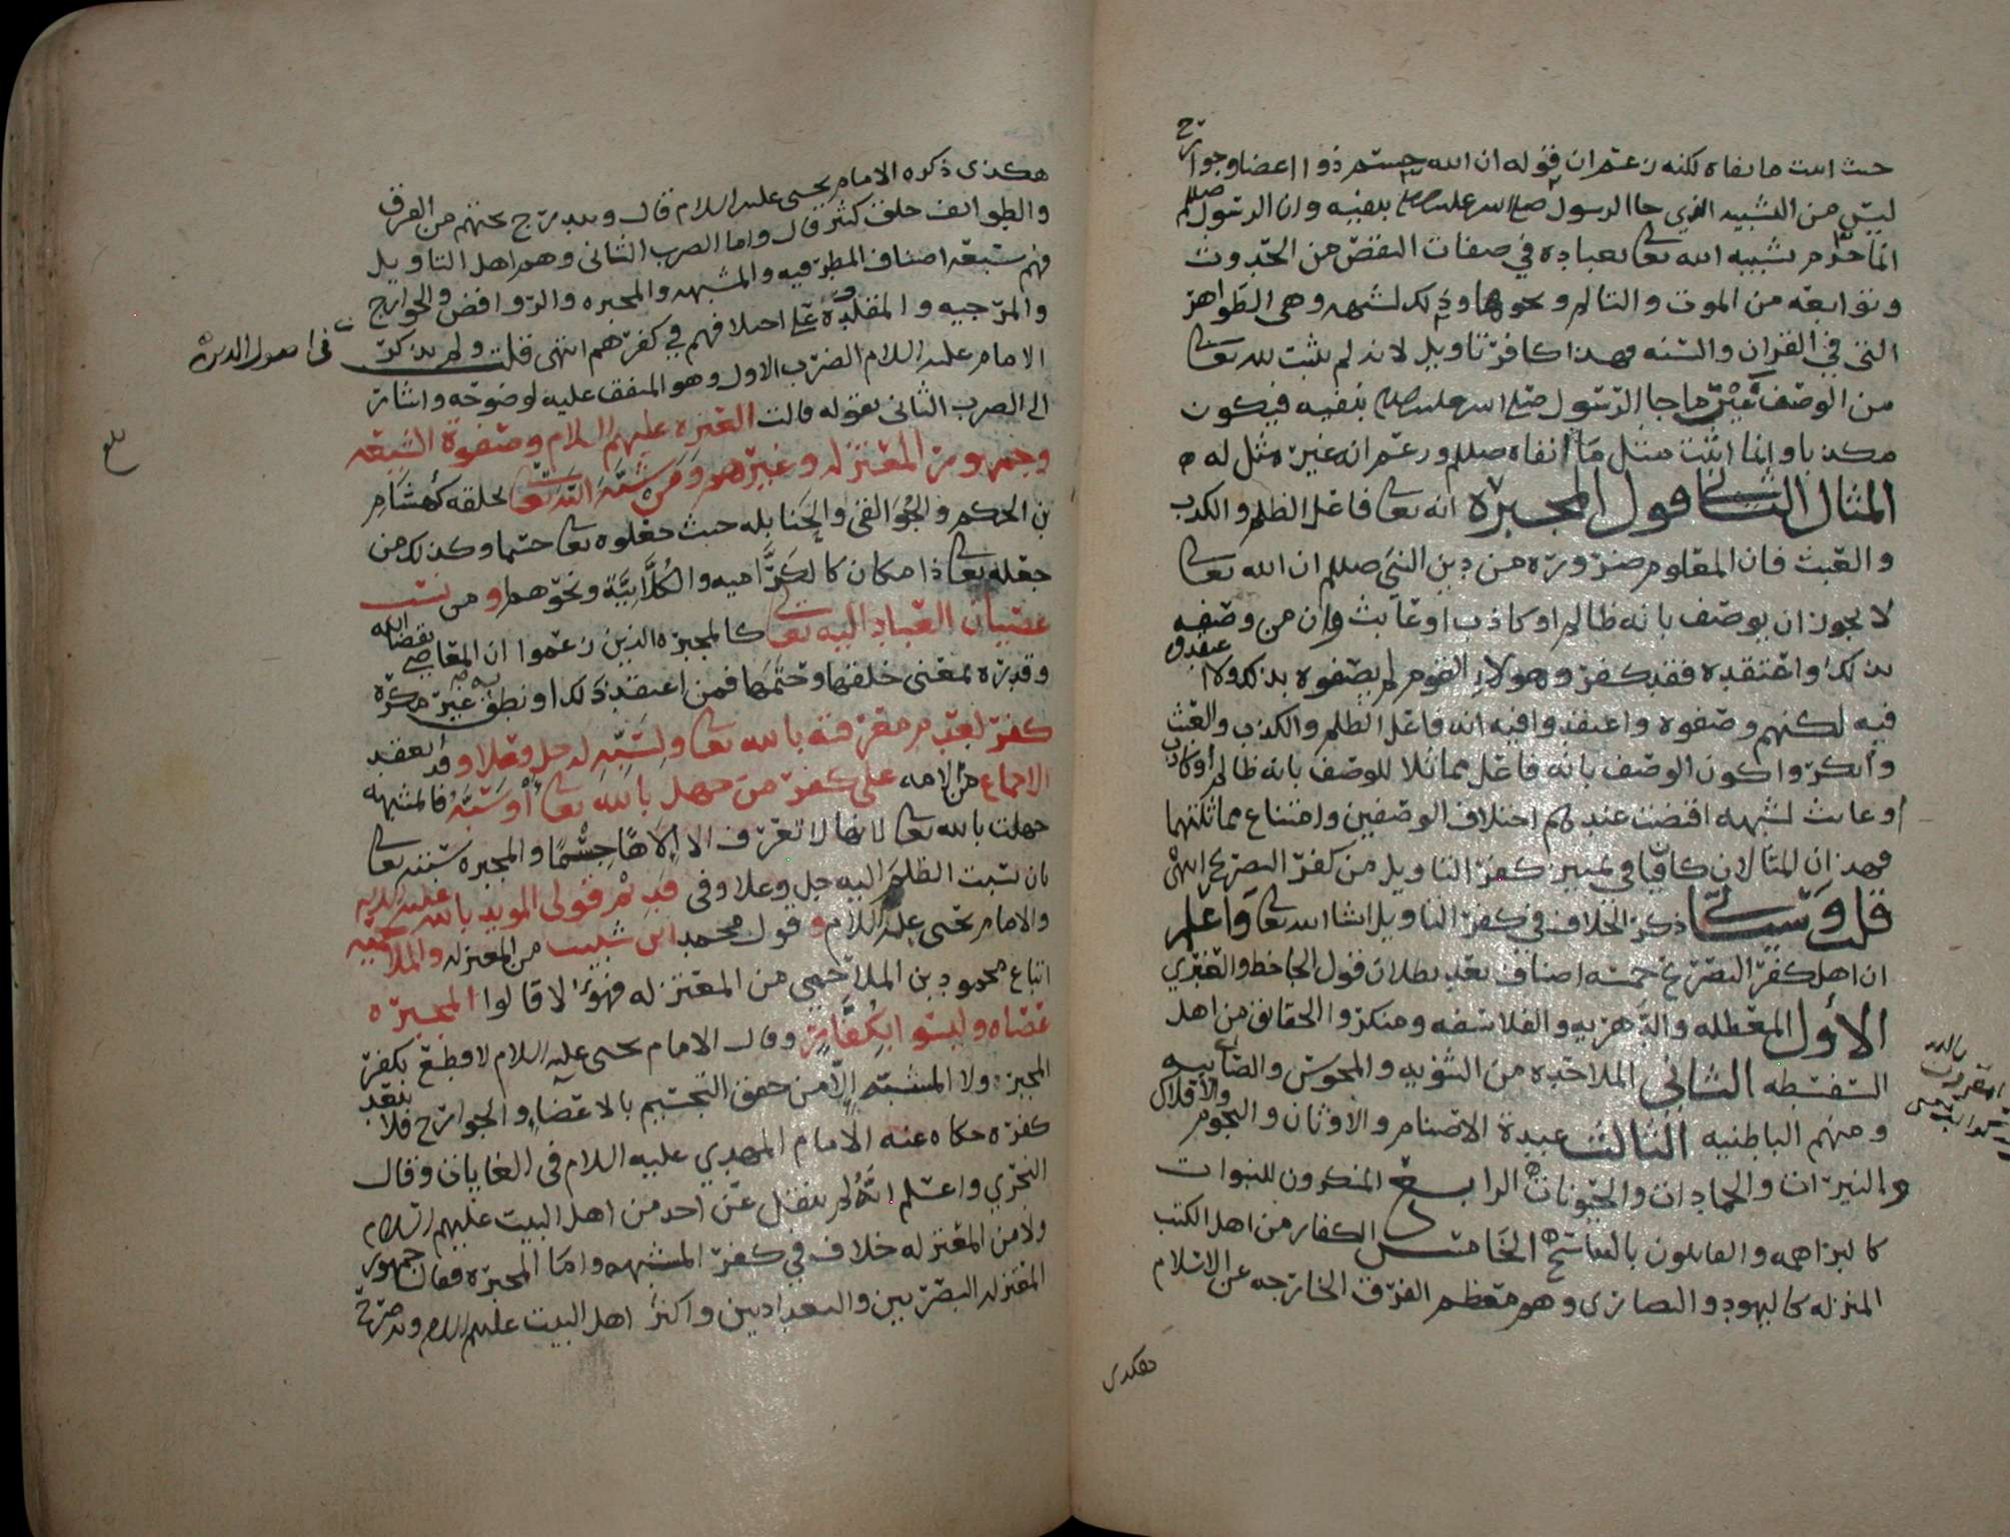 حيث اثبت ما نفاه لكنه زعم ان قوله ان الله جسم ذو اعضا وجوارح
ليس من التشبيه الذي جا الرسول صلى الله عليه وسلم بنفيه وان الرسول صللم
انما حرم تشبيه الله تعالى بعباده في صفات النقص من الحدوث
وتوابعه من الموت والتالم ونحوهما وذلك لشبهه وهي الظواهر
التي في القران والسنه فهذا كافر تاويل لانه لم يثبت لله تعالى
من الوصف غير ما جا الرسول صلى الله عليه وسلم بنفيه فيكون
مكذبا وانما اثبت مثل ما نفاه صللم وزعم انه غير مثل له
المثال الثاني قول المجبره انه تعالى فاعل الظلم والكذب
والعبث فان المعلوم ضرورة من دين النبي صللم ان الله تعالى
لا يجوز ان يوصف بانه ظالم او كاذب او عابث وان من وصفه
بذلك او اعتقده فقد كفر وهولاء القوم لم يصفوه بذلك ولا اعتقدوه
فيه لكنهم وصفوه واعتقدوا فيه انه فاعل الظلم والكذب والعبث
وانكروا كون الوصف بانه فاعل مماثلا للوصف بانه ظالم او كاذب
او عابث لشبهه اقتضت عندهم اختلاف الوصفين وامتناع مماثلتهما
فهذان المثالان كافيان في تمييز كفر التاويل من كفر التصريح انتهى
قلت وسياتي ذكر الخلاف في كفر التاويل ان شا الله تعالى واعلم
ان اهل كفر التصريح خمسه اصناف بعد بطلان قول الجاحظ والعنبري
الأول المعطله والدهريه والفلاسفه ومنكروا الحقائق من اهل
السفسطه الثاني الملاحده من الثنويه والمجوس والصابيه
ومنهم الباطنيه الثالث عبدة الاصنام والاوثان والنجوم والافلاك
والنيرات والجمادات والحيوانات الرابع المنكرون للنبوات
كالبراهمه والقايلون بالتناسخ الخامس الكفار من اهل الكتب
المنزله كاليهود والنصارى وهو معظم الفرق الخارجه عن الاسلام
هكذى
هكذى ذكره الامام يحيى عليه السلام قال ويندرج تحتهم من الفرق
والطوائف خلق كثير قال واما الضرب الثاني وهم اهل التاويل
فهم سبعه اصناف المطرفيه والمشبهه والمجبره والروافض والخوارج
والمرجيه والمقلدة على اختلافهم في كفرهم انتهى قلت ولم يذكر
في اصول الدين
الامام عليه السلام الضرب الاول وهو المتفق عليه لوضوحه واشار
الى الضرب الثاني بقوله قالت العتره عليهم السلام وصفوة الشيعه
وجمهور المعتزله وغيرهم ومن شبه الله تعالى بخلقه كهشام
بلغ
بن الحكم والجوالقي والحنابله حيث جعلوه تعالى جسما وكذلك من
جعله تعالى ذا مكان كالكراميه والكلابية ونحوهم او من نسب
عصيان العباد اليه تعالى كالمجبره الذين زعموا ان المعاصي بقضا الله
وقدره بمعنى خلقها وحتمها فمن اعتقد ذلك او نطق به غير مكره
كفر لعدم معرفته بالله تعالى ولسبه له جل وعلا وقد انعقد
الاجماع من الامه على كفر من جهل بالله تعالى أو سبه فالمشبهه
جهلت بالله تعالى لانها لا تعرف الا الاها جسما والمجبره سبته تعالى
بان نسبت الظلم اليه جل وعلا وفي قديم قولى المويد بالله عليه السلام
والامام يحيى عليه السلام وقول محمد ابن شبيب من المعتزله والملاحميه
اتباع محمود بن الملاحمي من المعتزله فهؤلا قالوا المجبره
عصاه وليسوا بكفار وقال الامام يحيى عليه السلام لا قطع بكفر
المجبره ولا المشبه إلا من حقق التجسيم بالاعضا والجوارح فلا بعد
كفره حكاه عنه الامام المهدي عليه السلام في الغايات وقال
النجري واعلم انه لم ينقل عن احد من اهل البيت عليهم السلام
ولا من المعتزله خلاف في كفر المشبهه واما المجبره فقال جمهور
المعتزله البصريين والبغداديين واكثر اهل البيت عليهم السلام